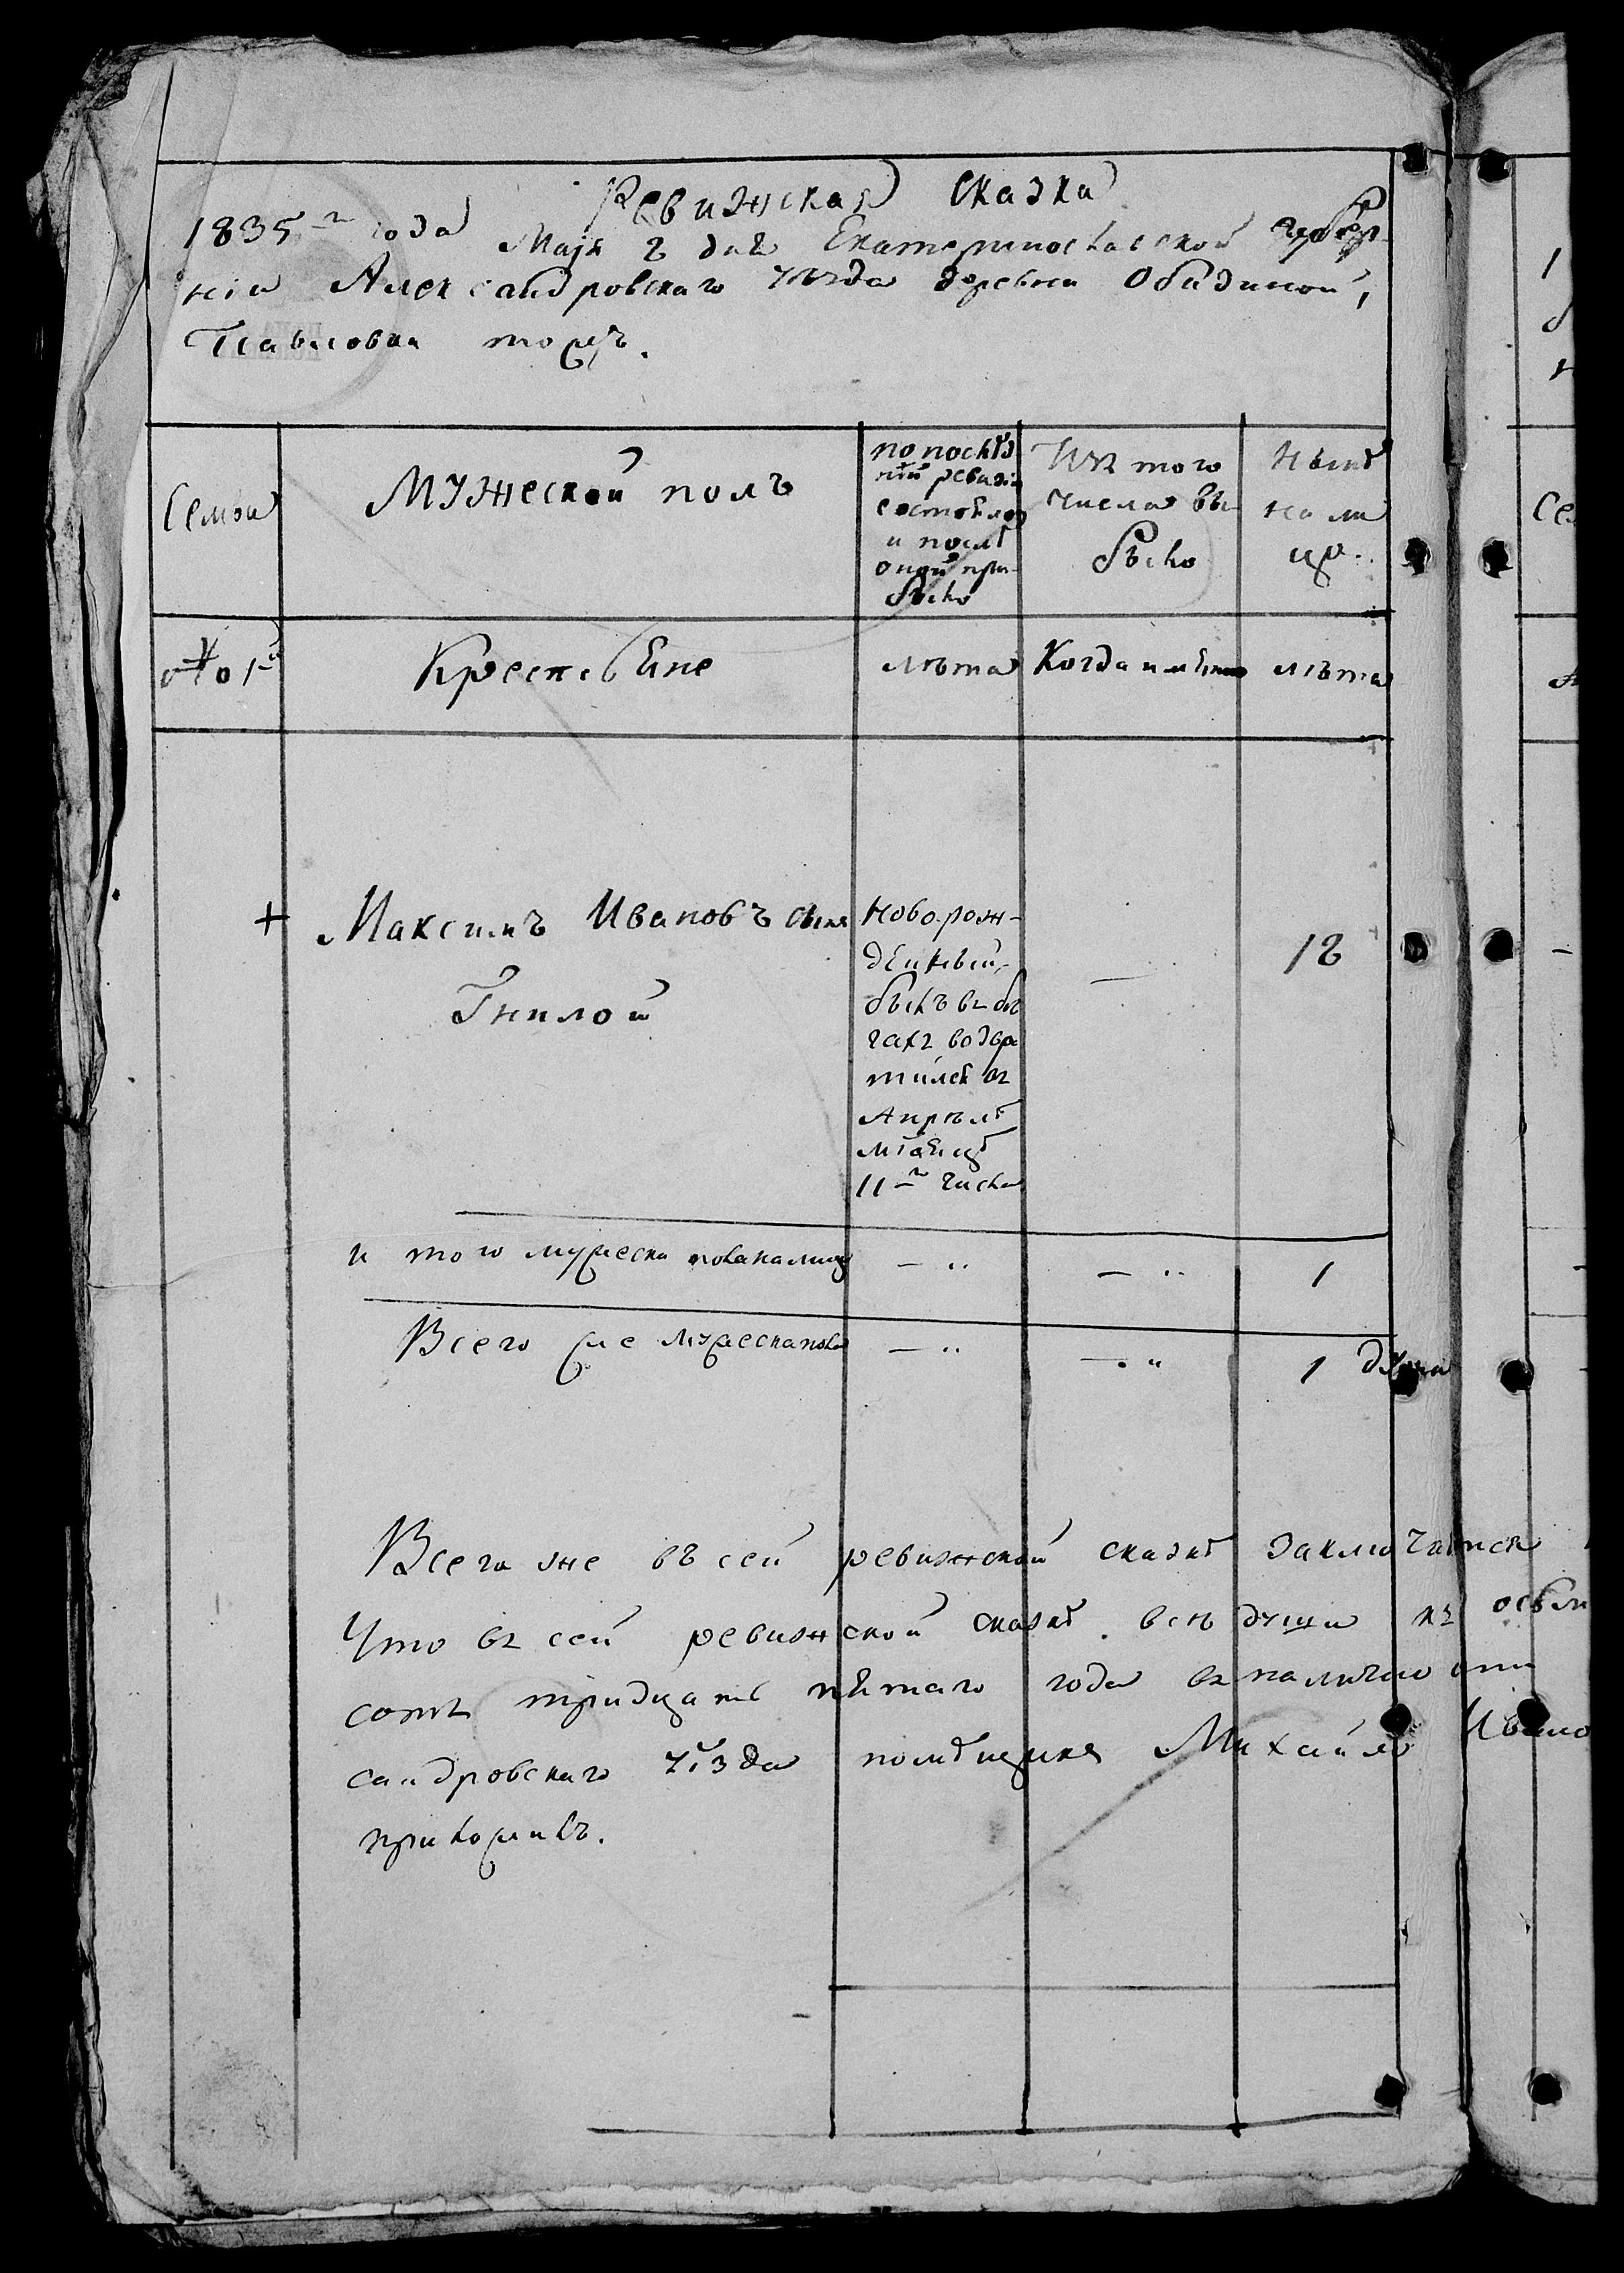 Ревижская сказка
1835го года Маія 2 дня Екатеринославской губер-
ніи Александровскаго уѣзда деревни Обидиной,
Павловки тожъ.
Семьи
Мужеской полъ
по послѣд
ней ревизіи
состояло
и послѣ
оной при-
было
Изъ того
числа вы
было
Нынѣ
на ли
цо.
№ 1й
Крестьяне
лѣта
Когда именно
лѣта
+
Максимъ Ивановъ сынъ
Гнилой
Новорож-
денный,
былъ въ бѣ
гахъ возвра
тился въ
Апрѣлѣ
мѣсяцѣ
11го числа
—
18
и того мужеска пола налицо
— ..
— ..
1
Всего же мужеска пола
— ..
— ..
1 душа
Всего же въ сей ревижской сказкѣ заключается
Что въ сей ревижской сказкѣ всѣ души къ
сотъ тридцать пятаго года въ наличіи
сандровскаго уѣзда помѣщика Михайло Ивано
приложилъ.